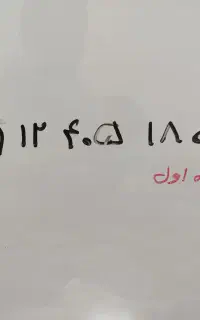 ۱۲ ۴۰۵ ۱۸
اول